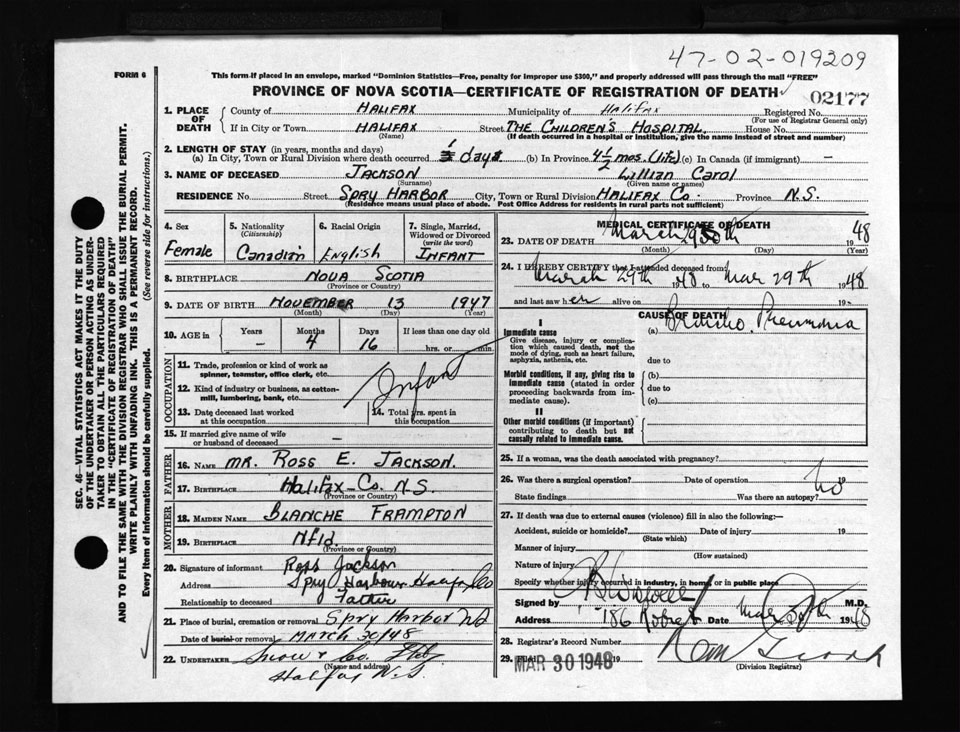 47-02-019209
FORM 6
This form if placed in an envelope, marked "Dominion Statistics—Free, penalty for improper use $300," and properly addressed will pass through the mail "FREE"
PROVINCE OF NOVA SCOTIA—CERTIFICATE OF REGISTRATION OF DEATH
02177
1. PLACE OF DEATH
County of HALIFAX Municipality of Halifax Registered No.
(For use of Registrar General only)
If in City or Town HALIFAX Street THE CHILDREN'S HOSPITAL House No.
(Name) (If death occurred in a hospital or institution, give the name instead of street and number)
2. LENGTH OF STAY (in years, months and days)
(a) In City, Town or Rural Division where death occurred 1 day (b) In Province 4½ mos. (life) (c) In Canada (if immigrant) —
3. NAME OF DECEASED JACKSON Lillian Carol
(Surname) (Given name or names)
RESIDENCE No. Street SPRY HARBOR City, Town or Rural Division HALIFAX Co. Province N.S.
(Residence means usual place of abode. Post Office Address for residents in rural parts not sufficient)
4. Sex Female
5. Nationality (Citizenship) Canadian
6. Racial Origin English
7. Single, Married, Widowed or Divorced (write the word) INFANT
8. BIRTHPLACE NOVA SCOTIA
(Province or Country)
9. DATE OF BIRTH NOVEMBER 13 1947
(Month) (Day) (Year)
10. AGE in Years Months Days If less than one day old
— 4 16 hrs. or min.
OCCUPATION
11. Trade, profession or kind of work as spinner, teamster, office clerk, etc.
12. Kind of industry or business, as cotton-mill, lumbering, bank, etc.
Infant
13. Date deceased last worked at this occupation
14. Total yrs. spent in this occupation
15. If married give name of wife or husband of deceased —
FATHER
16. NAME MR. ROSS E. JACKSON.
17. BIRTHPLACE Halifax Co. N.S.
(Province or Country)
MOTHER
18. MAIDEN NAME BLANCHE FRAMPTON
19. BIRTHPLACE Nfld.
(Province or Country)
20. Signature of informant Ross Jackson
Address Spry Harbour Halifax Co
Relationship to deceased Father
21. Place of burial, cremation or removal SPRY HARBOR NS
Date of burial or removal MARCH 30/48
22. UNDERTAKER Snow & Co. Ltd.
(Name and address)
Halifax N.S.
MEDICAL CERTIFICATE OF DEATH
23. DATE OF DEATH March 1948
(Month) (Day)
24. I HEREBY CERTIFY that I attended deceased from
March 29th 1948 to Mar 29th 1948
and last saw her alive on 19
CAUSE OF DEATH
I
Immediate cause
Give disease, injury or complication which caused death, not the mode of dying, such as heart failure, asphyxia, asthenia, etc.
(a) Broncho. Pneumonia
due to
Morbid conditions, if any, giving rise to immediate cause (stated in order proceeding backwards from immediate cause).
(b)
due to
(c)
II
Other morbid conditions (if important) contributing to death but not causally related to immediate cause.
25. If a woman, was the death associated with pregnancy?
26. Was there a surgical operation? Date of operation 19
State findings Was there an autopsy? no
27. If death was due to external causes (violence) fill in also the following:—
Accident, suicide or homicide? Date of injury 19
(State which)
Manner of injury
(How sustained)
Nature of injury
Specify whether injury occurred in industry, in home, or in public place
Signed by M.D.
Address 186 Date Mar 30th 1948
28. Registrar's Record Number
29. Filed MAR 30 1948
(Division Registrar)
SEC. 46—VITAL STATISTICS ACT MAKES IT THE DUTY
OF THE UNDERTAKER OR PERSON ACTING AS UNDERTAKER
TO OBTAIN ALL THE PARTICULARS REQUIRED
IN THE "CERTIFICATE OF REGISTRATION OF DEATH"
AND TO FILE THE SAME WITH THE DIVISION REGISTRAR WHO SHALL ISSUE THE BURIAL PERMIT.
WRITE PLAINLY WITH UNFADING INK. THIS IS A PERMANENT RECORD.
Every item of information should be carefully supplied. (See reverse side for instructions.)